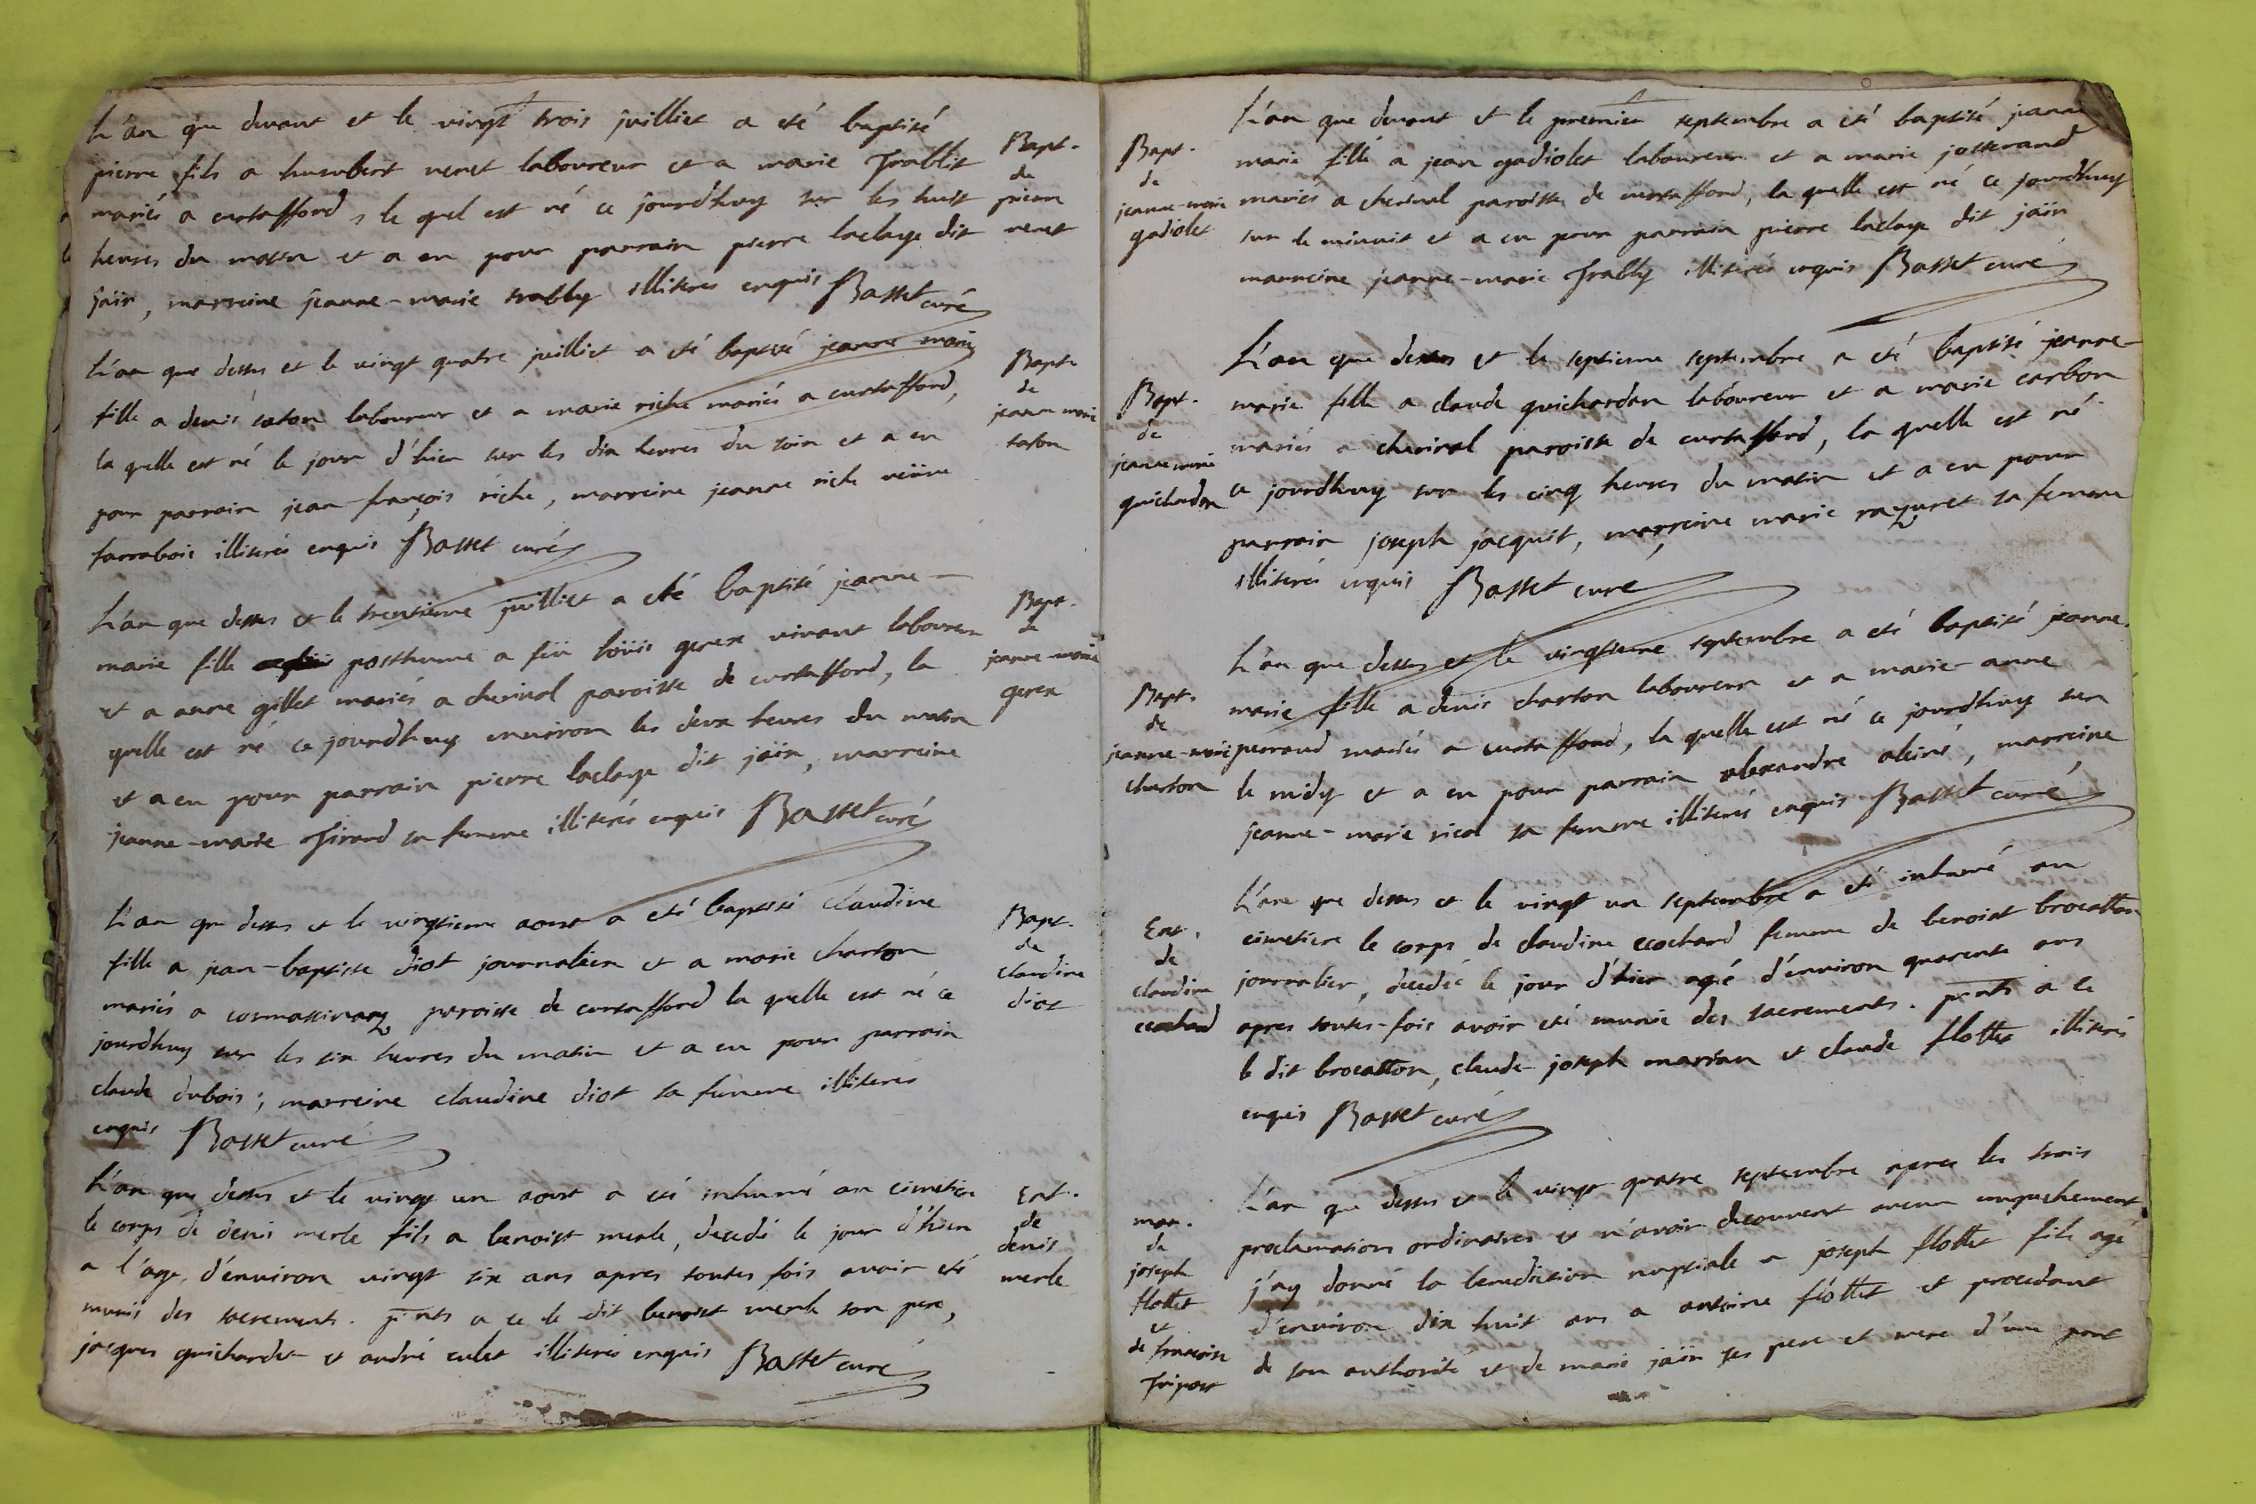 L'an que devant et le vingt trois juilliet a eté baptisé
pierre fils a humbert venet laboureur et a marie Trablit
mariés a curtaffond, le quel est né ce jourd'huy sur les huit
heures du matin et a eu pour parrain pierre laclaye dit
jaïn, marreine jeanne-marie trably illiteres enquis Basset curé
Bapt.
de
pierre
venet
L'an que dessus et le vingt quatre juilliet a eté baptisé jeanne marie
fille a denis taton laboureur et a marie riche mariés a curtaffond,
la quelle est né le jour d'hier sur les dix heures du soir et a eu
pour parrain jean-françois riche, marreine jeanne riche veüve
farrabois illiterés enquis Basset curé
Bapt.
de
jeanne marie
taton
L'an que dessus et le trentieme juilliet a eté baptisé jeanne-
marie fille posthume a feu loüis gerex vivant laboureur
et a anne gillet mariés a cherinal paroisse de curtaffond, la
quelle est né ce jourd'huy environ les deux heures du matin
et a eu pour parrain pierre laclaye dit jaïn, marreine
jeanne-marie Tirand sa femme illiterés enquis Basset curé
Bapt.
de
jeanne-marie
gerex
L'an que dessus et le vingtieme aoust a eté baptisé Claudine
fille a jean-baptiste diot journalier et a marie charton
mariés a cormassinaz paroisse de curtaffond la quelle est né ce
jourdhuy sur les six heures du matin et a eu pour parrain
claude dubois; marreine claudine diot sa femme illiteres
enquis Basset curé
Bapt.
de
claudine
diot
L'an que dessus et le vingt un aoust a eté inhumé au cimetiere
le corps de denis merle fils a benoist merle, decedé le jour d'hier
a l'age d'environ vingt six ans apres toutes fois avoir eté
munis des sacrements. pnts a ce le dit benoist merle son pere,
jacques guichardet et andré culet illiterés enquis Basset curé
Ent.
de
denis
merle
L'an que devant et le premier septembre a eté baptisé jeanne
marie fille a jean gadiolet laboureur et a marie josserand
mariés a cherinal paroisse de curtaffond, la quelle est né ce jourd'huy
sur le minuit et a eu pour parrain pierre laclaye dit jaïn
marreine jeanne-marie Trably illiterés enquis Basset curé
Bapt.
de
jeanne-marie
gadiolet
L'an que dessus et le septieme septembre a eté baptisé jeanne-
marie fille a claude guichardon laboureur et a marie carbon
mariés a cherinal paroisse de curtaffond, la quelle est né
ce jourdhuy sur les cinq heures du matin et a eu pour
parrain joseph jacquit, marreine marie rayuret sa femme
illiterés enquis Basset curé
Bapt.
de
jeanne marie
guichardon
L'an que dessus et le vingtieme septembre a eté baptisé jeanne-
marie fille a denis charton laboureur et a marie-anne
perraud mariés a curtaffond, la quelle est né ce jourdhuy sur
le midy et a eu pour parrain alexandre aleiné, marreine
jeanne-marie ricol sa femme illiterés enquis Basset curé
Bapt.
de
jeanne-marie
charton
L'an que dessus et le vingt un septembre a eté inhumé au
cimetiere le corps de claudine ecochard femme de benoist brocatton
journalier, decedée le jour d'hier agé d'environ quarente ans
apres toutes-fois avoir eté munie des sacrements. pnts a ce
le dit brocatton, claude-joseph marian et claude flottet illiterés
enquis Basset curé
Ent.
de
claudine
ecochard
L'an que dessus et le vingt quatre septembre apres les trois
proclamations ordinaires et n'avoir decouvert aucun empechement
j'ay donné la benediction nuptiale a joseph flottet fils agé
d'environ dix huit ans a antoine flottet et procedant
de son authorité et de marie jaïn ses pere et mere d'une part
mar.
de
joseph
flottet
et
de françoise
Tripoz